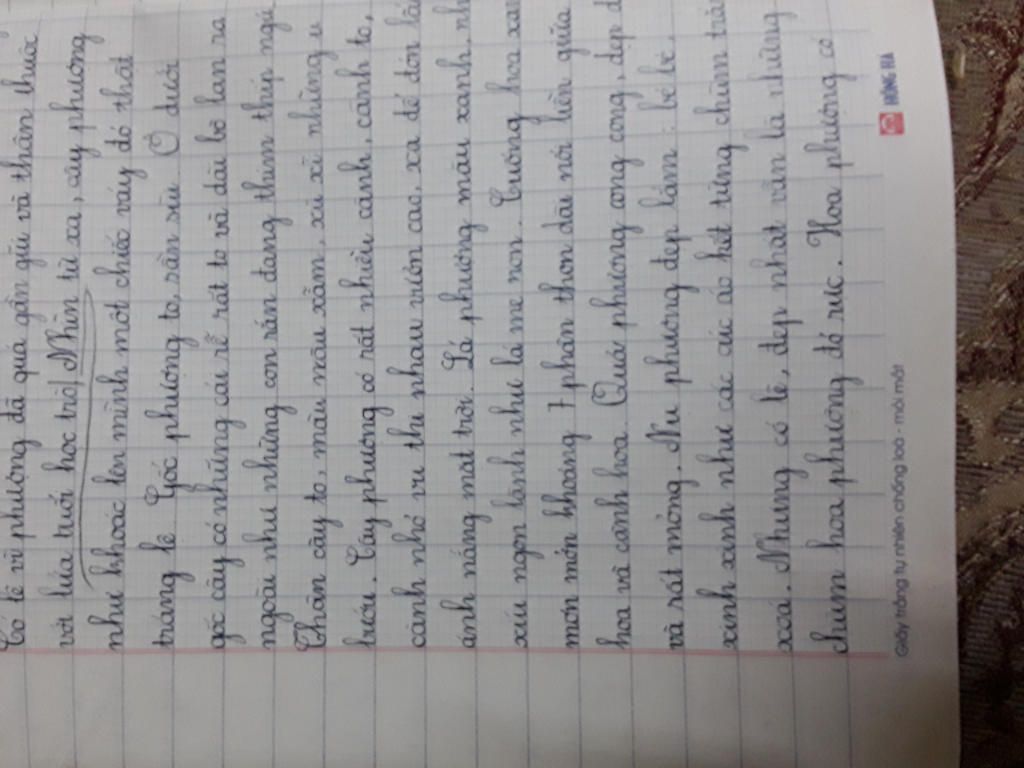 Có lẽ vì phượng đã quá gần gũi và thân thuộc
với lứa tuổi học trò! Nhìn từ xa, cây phượng
như khoác lên mình một chiếc váy đỏ thật
tráng lệ. Gốc phượng to, sần sùi. Ở dưới
gốc cây có những cái rễ rất to và dài bò lan ra
ngoài như những con rắn đang thim thíp ngủ
Thân cây to, màu nâu xẫm, xù xì những u
bướu. Cây phượng có rất nhiều cành, cành to,
cành nhỏ vu thi nhau vươn cao, xa để đón lấ
ánh nắng mặt trời. Lá phượng màu xanh, nh
xíu ngon lành như lá me non. Cuống hoa xan
mơn mởn khoảng 7 phân thon dài nối liền giữa
hoa và cành hoa. Quả phượng cong cong, dẹp d
và rất mỏng. Nụ phượng đẹp lắm: bé bé,
xinh xinh như các cúc áo kết từng chùm trô
xoá. Nhưng có lẽ, đẹp nhất vẫn là những
chùm hoa phượng đỏ rực. Hoa phượng có
Giấy trắng tự nhiên chống loá - mỏi mắt
HỒNG HÀ